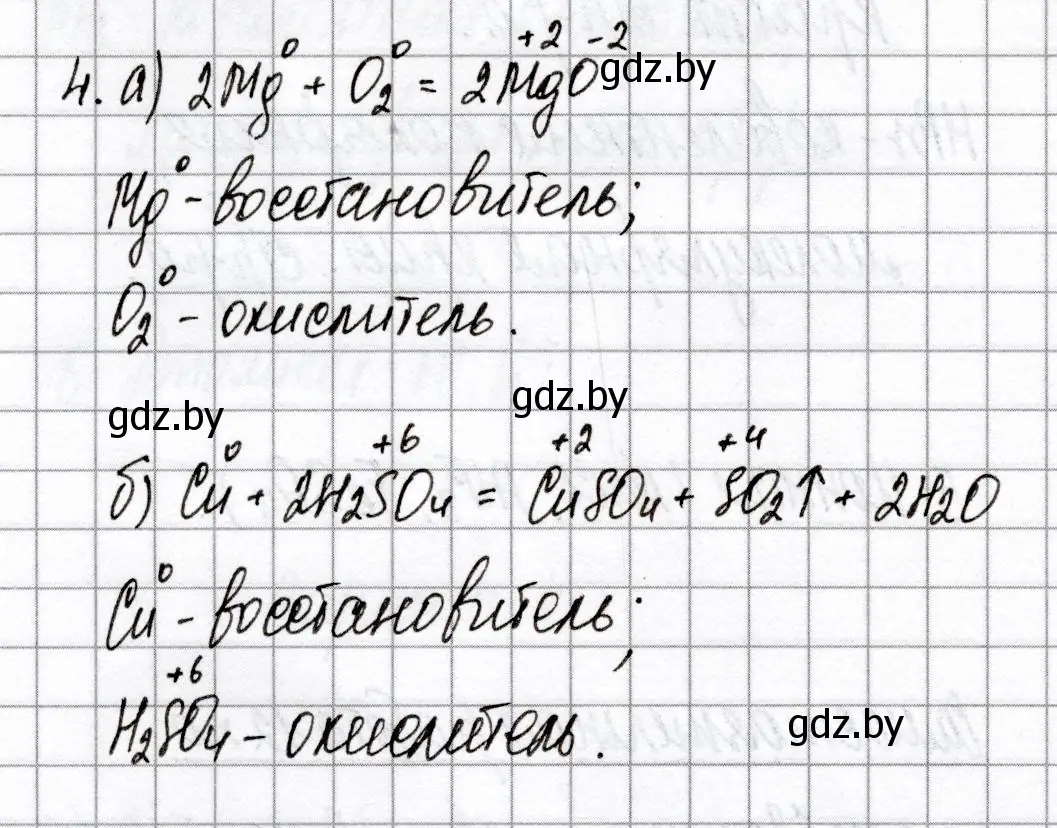 4. а) 2Mg⁰ + O₂⁰ = 2Mg⁺²O⁻² gdz.by
Mg⁰ - восстановитель;
O₂⁰ - окислитель.
gdz.by gdz.by
б) Cu⁰ + 2H₂S⁺⁶O₄ = Cu⁺²SO₄ + S⁺⁴O₂↑ + 2H₂O
Cu⁰ - восстановитель;
H₂S⁺⁶O₄ - окислитель. gdz.by